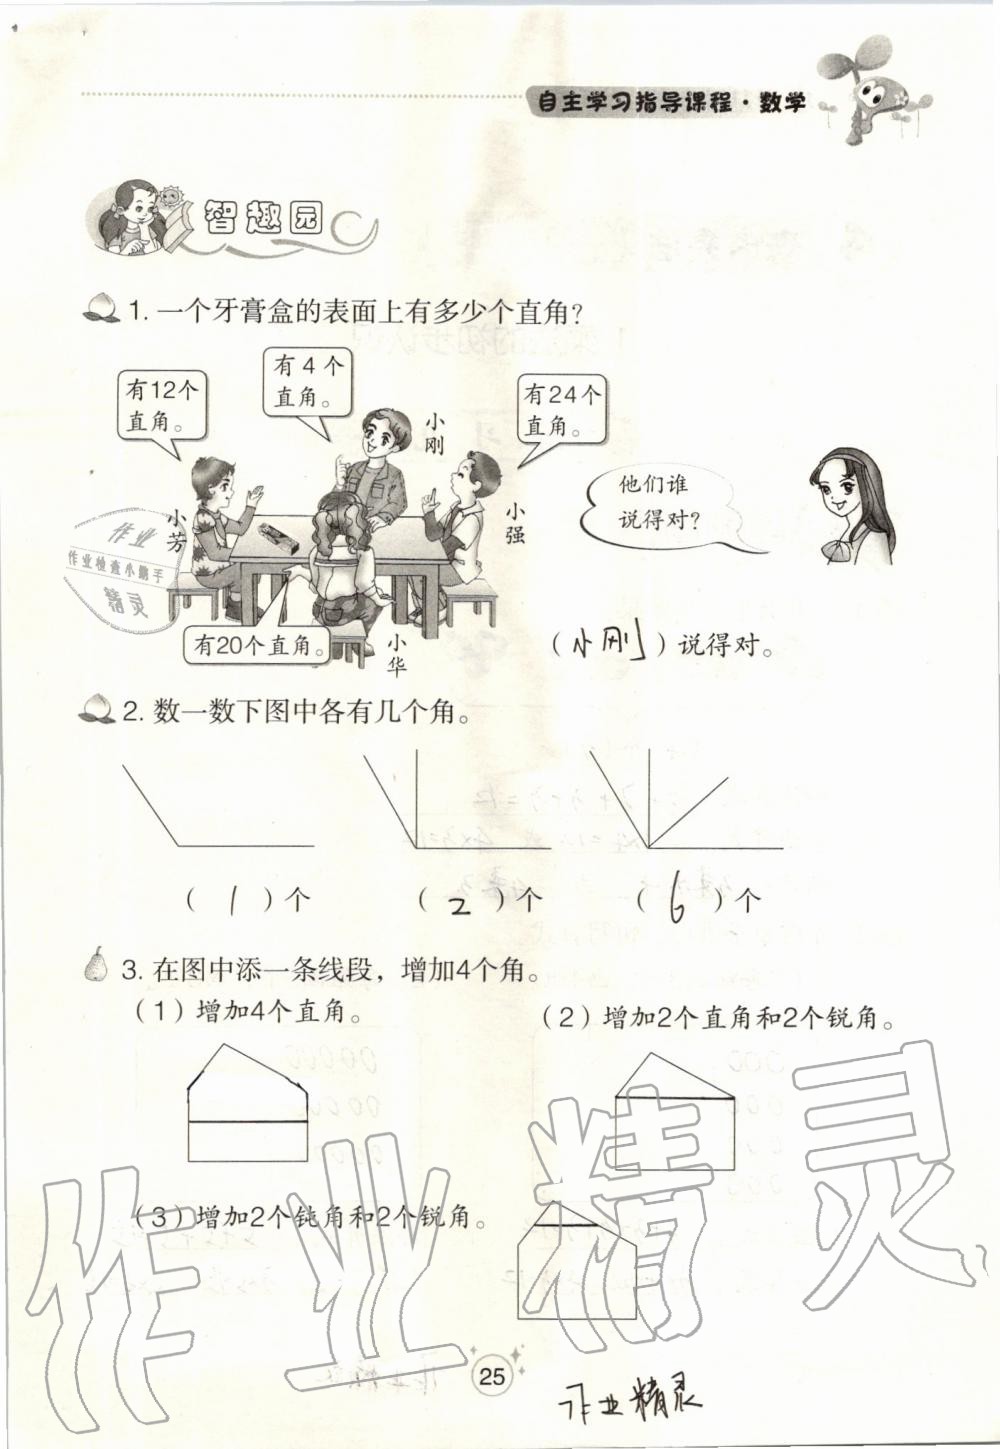 自主学习指导课程·数学
智趣园
1. 一个牙膏盒的表面上有多少个直角?
有12个
直角。
有4个
直角。
小刚
有24个
直角。
小芳
小强
他们谁
说得对?
作业
作业检查小助手
精灵
有20个直角。
小华
(小刚)说得对。
2. 数一数下图中各有几个角。
(1)个 (2)个 (6)个
3. 在图中添一条线段，增加4个角。
(1)增加4个直角。
(2)增加2个直角和2个锐角。
(3)增加2个钝角和2个锐角。
作业精灵
25
作业精灵